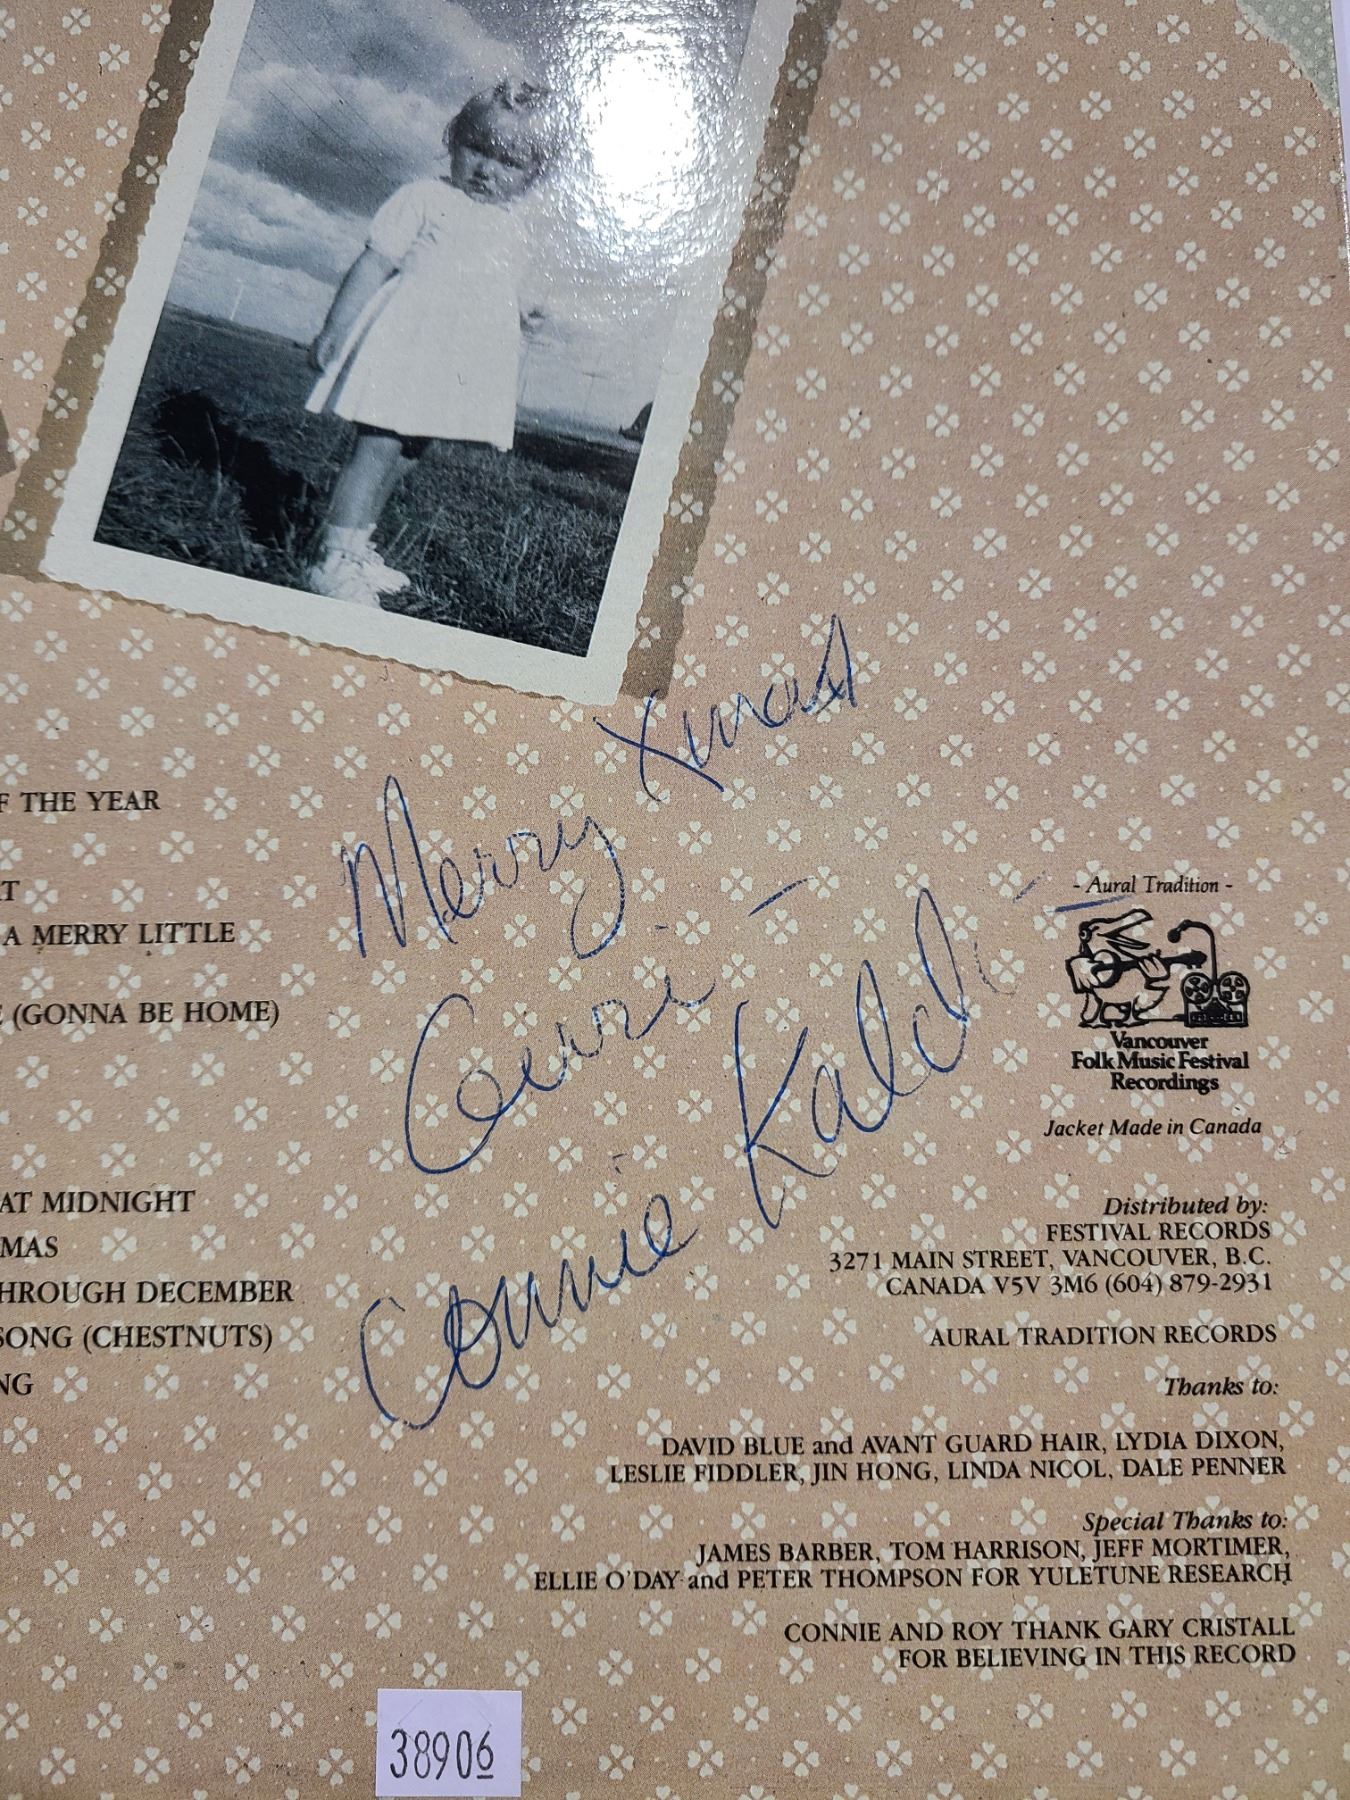 F THE YEAR
T
A MERRY LITTLE
(GONNA BE HOME)
AT MIDNIGHT
MAS
HROUGH DECEMBER
SONG (CHESTNUTS)
NG
Merry Xmas
Connie Kaldi
- Aural Tradition -
Vancouver
Folk Music Festival
Recordings
Jacket Made in Canada
Distributed by:
FESTIVAL RECORDS
3271 MAIN STREET, VANCOUVER, B.C.
CANADA V5V 3M6 (604) 879-2931
AURAL TRADITION RECORDS
Thanks to:
DAVID BLUE and AVANT GUARD HAIR, LYDIA DIXON,
LESLIE FIDDLER, JIN HONG, LINDA NICOL, DALE PENNER
Special Thanks to:
JAMES BARBER, TOM HARRISON, JEFF MORTIMER,
ELLIE O'DAY and PETER THOMPSON FOR YULETUNE RESEARCH
CONNIE AND ROY THANK GARY CRISTALL
FOR BELIEVING IN THIS RECORD
38906